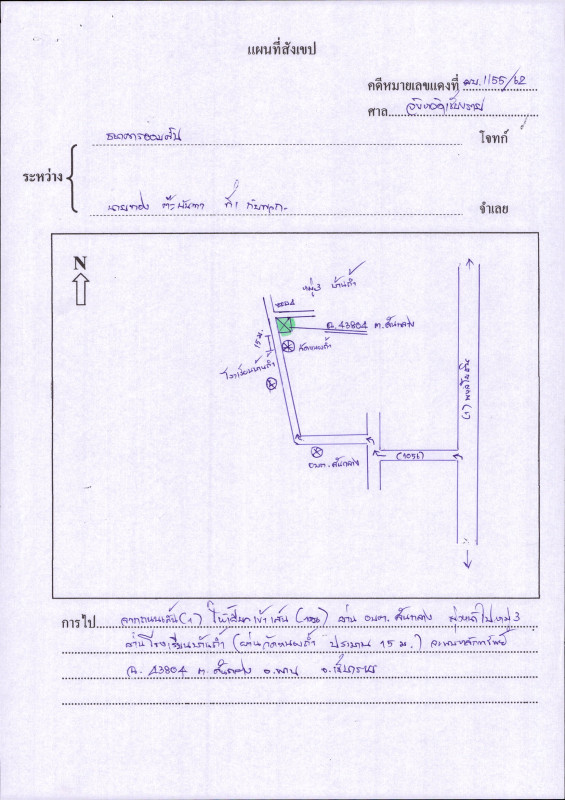 แผนที่สังเขป
คดีหมายเลขแดงที่ ผบ.1155/62
ศาล จังหวัดเชียงราย
ธนาคารออมสิน โจทก์
ระหว่าง
นายทอง ที่ 1 กับพวก จำเลย
N
หมู่ 3 บ้านถ้ำ
ซอย 4
ฉ. 43804 ต.สันกลาง
15 ม.
วัดหนองถ้ำ
โรงเรียนบ้านถ้ำ
(1) พหลโยธิน
(1056)
อบต.สันกลาง
การไป จากถนนเส้น (1) ให้เลี้ยวเข้าเส้น (1056) ผ่าน อบต.สันกลาง มุ่งหน้าไปหมู่ 3
ผ่านโรงเรียนบ้านถ้ำ (ผ่านวัดหนองถ้ำ ประมาณ 15 ม.) จะพบหลักทรัพย์
ฉ. 43804 ต.สันกลาง อ.พาน จ.เชียงราย